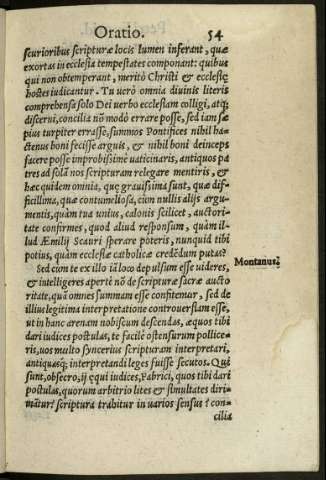 Oratio. 54
scurioribus scripturæ locis lumen inferant, quæ
exortas in ecclesia tempestates componant: quibus
qui non obtemperant, meritò Christi & ecclesię
hostes iudicantur. Tu uerò omnia diuinis literis
comprehensa solo Dei uerbo ecclesiam colligi, atq;
discerni, concilia nō modò errare posse, sed iam sæ
pius turpiter errasse, summos Pontifices nihil ha-
ctenus boni fecisse arguis, & nihil boni deinceps
facere posse improbissimè uaticinaris, antiquos pa
tres ad solā nos scripturam relegare mentiris, &
hæc quidem omnia, quę grauissima sunt, quæ dif-
ficillima, quæ contumeliosa, cùm nullis alijs argu-
mentis, quàm tua unius, calonis scilicet, auctori-
tate confirmes, quod aliud responsum, quàm il-
lud Æmilij Scauri sperare poteris, nunquid tibi
potius, quàm ecclesiæ catholicæ credēdum putas?
Sed cùm te ex illo iā loco depulsum esse uideres,
& intelligeres apertè nō de scripturæ sacræ aucto
ritate, quā omnes summam esse confitemur, sed de
illius legitima interpretatione controuersiam esse,
ut in hanc arenam nobiscum descendas, æquos tibi
dari iudices postulas, te facilè ostensurum pollice-
ris, uos multo syncerius scripturam interpretari,
antiquasq; interpretandi leges fuisse secutos. Qui
sunt, obsecro, ij ęqui iudices, Fabrici, quos tibi dari
postulas, quorum arbitrio lites & simultates diri-
mātur? scriptura trahitur in uarios sensus? con-
cilia
Montanus.